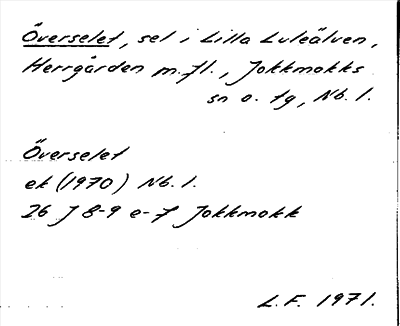 Överselet, sel i Lilla Luleälven,
Herrgården m.fl., Jokkmokks
sn o. tg, Nb. l.
Överselet
ek (1970) Nb. l.
26 J 8-9 e-f Jokkmokk
L.F. 1971.